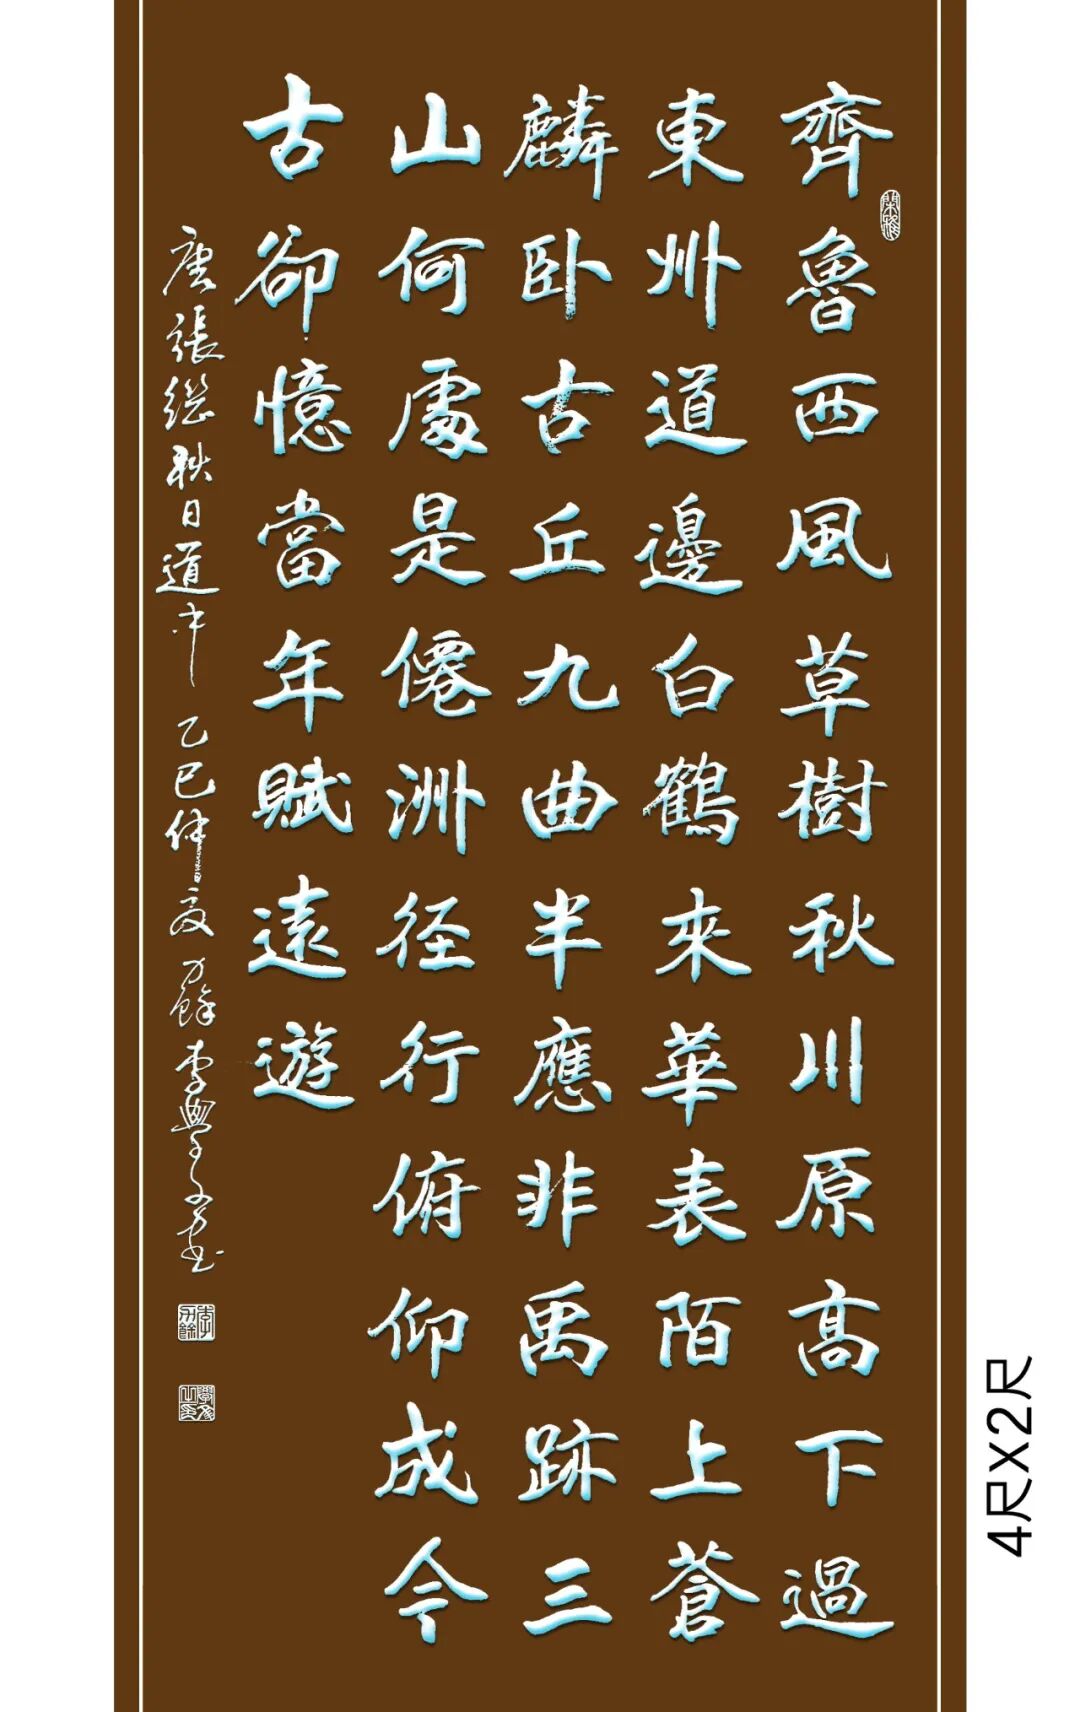 齊魯西風草樹秋川原高下過
東州道邊白鶴來華表陌上蒼
麟卧古丘九曲半應非禹跡三
山何處是僊洲径行俯仰成今
古卻憶當年賦遠遊
唐張繼秋日道中 乙巳仲夏 力餘李學文書
4尺X2尺